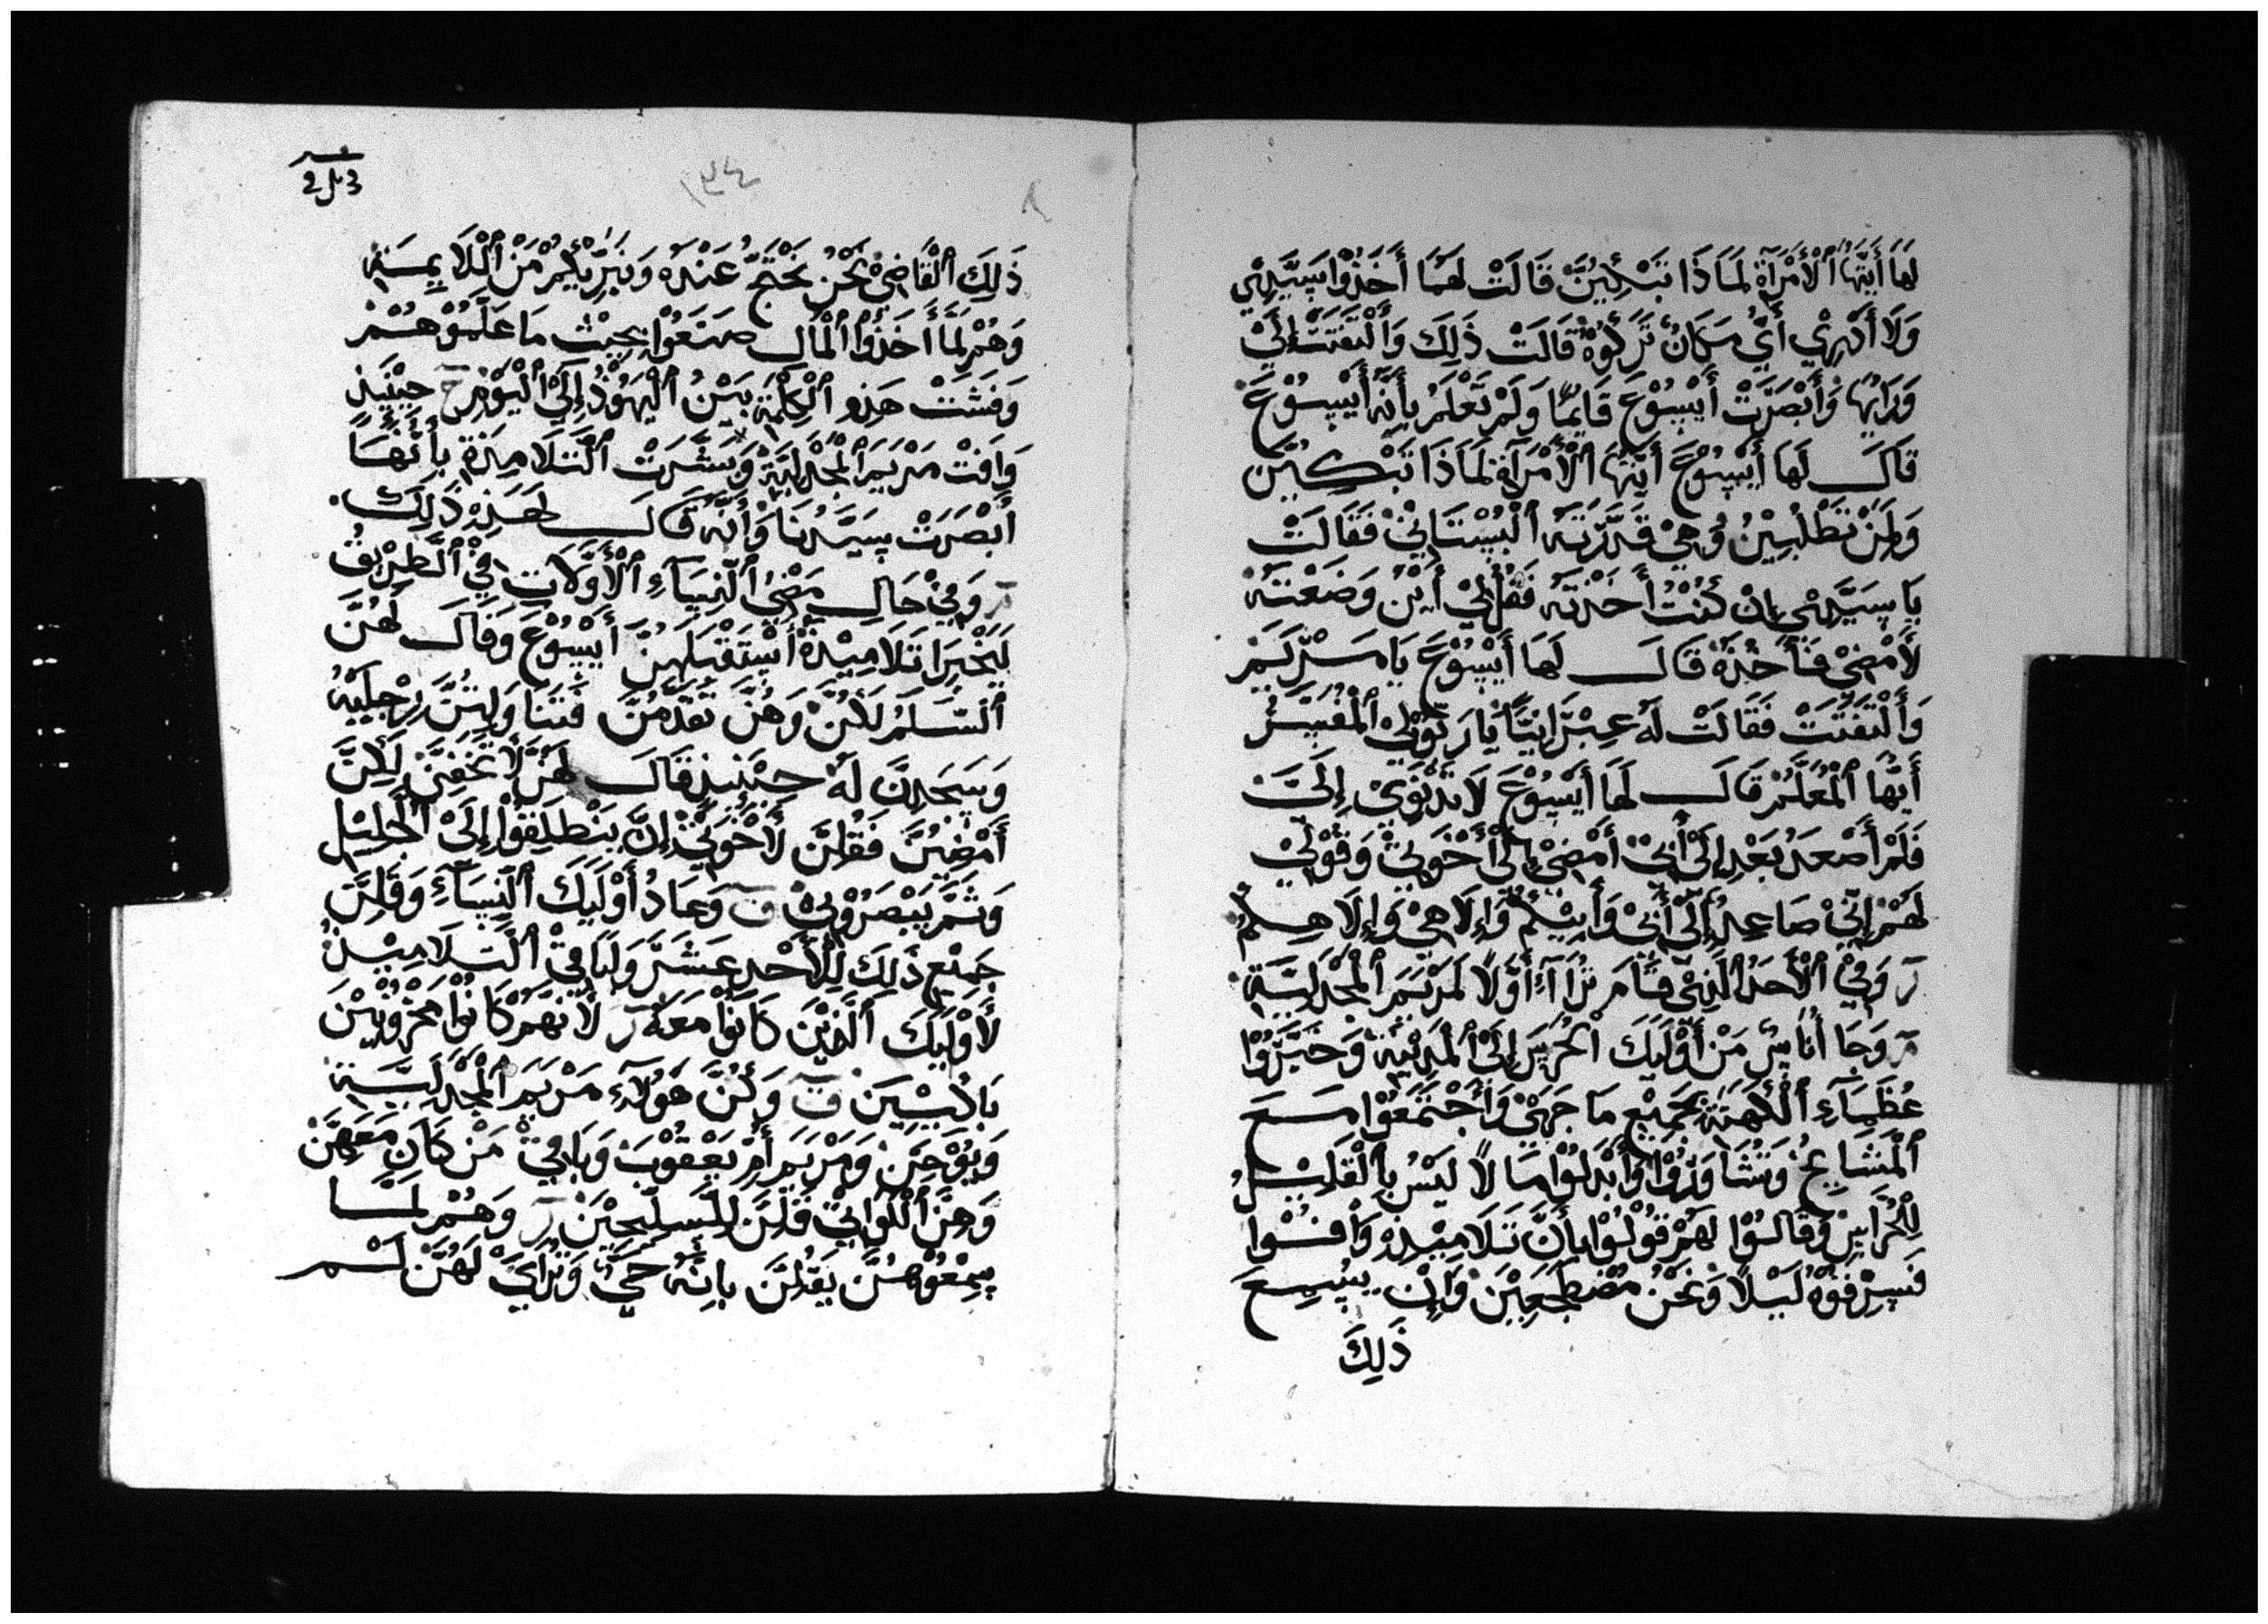 لَهَا أَيَّتُهَا ٱلْأَمْرَأَةُ لِمَاذَا تَبْكِيْنَ قَالَتْ لَهُمَا أَخَذُوْا سَيِّدِيْ
وَلَا أَدْرِيْ أَيَّ مَكَانٍ تَرَكُوْهُ قَالَتْ ذَلِكَ وَٱلْتَفَتَتْ إِلَيْ
وَرَايِهَا وَأَبْصَرَتْ أَيْسُوْعَ قَايِمًا وَلَمْ تَعْلَمْ بِأَنَّهُ أَيْسُوْعَ
قَالَ لَهَا أَيْسُوْعَ أَيَّتُهَا ٱلْأَمْرَأَةُ لِمَاذَا تَبْكِيْنَ
وَلِمَنْ تَطْلُبِيْنُ وَهِيْ قَدَّرَتَهُ ٱلْبُسْتَانِيْ فَقَالَتْ
يَا سَيِّدِيْ إِنْ كُنْتَ أَخَذْتَهُ فَقُلْ لِيْ أَيْنَ وَضَعْتَهُ
لَأَمْضِيْ فَأَخُذَهُ قَالَ لَهَا أَيْسُوْعَ يَا مَرْيَمَ
وَٱلْتَفَتَتْ فَقَالَتْ لَهُ عِبْرَانِيًّا يَا رَبُّوْلِيْ ٱلْمُفَسَّرُ
أَيُّهَا ٱلْمُعَلِّمْ قَالَ لَهَا أَيْسُوْعَ لَا تَدْنُوَيْ إِلَيَّ
فَلَمْ أَصْعَدُ بَعْدِ إِلَىْ أَبِيْ أَمْضِيْ إِلَىْ أَخْوَتِيْ وَقُوْلِيْ
لَهُمْ إِنِّيْ صَاعِدُ إِلَىْ أَبِيْ وَأَبِيْكُمْ وَإِلَاهِيْ وَإِلَاهِكُمْ
ر وَفِيْ ٱلْأَحَدِ ٱلَّذِيْ قَامَ تَرَاآءَ أَوَّلًا لِمَرْيَمَ ٱلْمَجْدَلِيَّةِ
مر وَجَا أُنَاسٌ مَنْ أَوْلَيِكَ ٱلْحُرَّسَ إِلَىْ ٱلْمَدِيْنَةِ وَخَبَّرُوْا
عُظَمَآءِ ٱلْكَهَنَةِ بِجَمِيْعِ مَا جَرَىْ وَٱجْتَمَعُوْا مَعَ
ٱلْمَشَايِخُ وَتَشَاوَرُوْا وَأَبْدَلُوْا مَالًا لَيْسُ بِٱلْقَلِيْلُ
لِلْحُرَّاسِ وَقَالُوْا لَهُمْ قُوْلُوْا بِأَنَّ تَلَامِيْذِهِ وَافُوْا
فَسِرْقُوْهُ لَيْلًا وَنَحْنُ مُضْطَجِعِيْنَ وَإِنْ يَسْمِعَ
ذَلِكَ
١٣٤
ذَلِكَ ٱلْقَاضِيْ نَحْنُ نَحْتَجُّ عَنْدَهُ وَنَبَرِّيْكُمْ مَنْ ٱلْلَايِمَةِ
وَهُمْ لَمَّا أَخَذُوْا ٱلْمَالِ صَنَعُوْا بِحِيْثُ مَا عَلَّمُوْهُمْ
وَفَشَتْ هَذِهِ ٱلْكِلْمَةِ بَيْنُ ٱلْيَهُوْدُ إِلَىْ ٱلْيَوْمِ ح حِيْنَيِذٍ
وَافَتْ مَرْيَمَ ٱلْمَجْدَلِيَّةِ وَبَشَّرَتْ ٱلتَّلَامِذَةِ بِأَنَّهَا
أَبْصَرَتْ سَيِّدُنَا وَأَنَّهُ قَالَ لَهَا هَذِهِ ذَلِكَ
مر وَفِيْ حَالِ مَضِيْ ٱلنِّسَآءِ ٱلْأَوَّلَاتِ فِيْ ٱلطَّرِيْقُ
لَيَخْبِرَا تَلَامِيْذَهُ أَسْتَقْبَلَهِنَّ أَيْسُوْعَ وَقَالَ لَهُنَّ
ٱلسَّلَمُ لَكُنَّ وَهُنَّ تَقَدَّمْنَ فَتَنَاوَلِنَّ رِجْلَيْهِ
وَسَجَدِنَّ لَهُ حِيْنَيِذٍ قَالَ لَهُنَّ لَا تَخَفِيْنَ لَكِنَّ
أَمْضِيْنَ فَقُلِنَّ لَأَخْوَتِيْ إِنَّ يَنْطَلِقُوْا إِلَىْ ٱلْجَلِيْلِ
وَثَمَّ يَبْصِرُوْنِيْ ق وَعَادُ أَوْلَيِكَ ٱلنِّسَآءِ وَقَلِنَّ
جَمِيْعِ ذَلِكَ لِلْأَحْدِ عَشَرَ وَلِبَاقِيْ ٱلتَّلَامِيْذُ
لَأَوْلَيِكَ ٱلَّذِيْنَ كَانُوْا مَعَهُ ر لَأَنَّهُمْ كَانُوْا مَحْزُوْنِيْنَ
بَاكِيْيِنَ ق وَكُنَّ هَوُلَآءِ مَرْيَمَ ٱلْمَجْدَلِيَّةِ
وَيُوْحِنَ وَمَرْيَمَ أُمْ يَعْقُوْبَ وَبَاقِيْ مَنْ كَانَ مَعَهِنَّ
وَهِنَّ ٱللَّوَاتِيْ قَلِنَّ لِلسَّلِيْحِيْنَ ر وَهُمْ لَمَّا
سِمْعُوْهُنَّ يَقُلِنَّ بِانَّهُ حَيٌّ وَتَرَايَ لَهُنَّ لَمْ